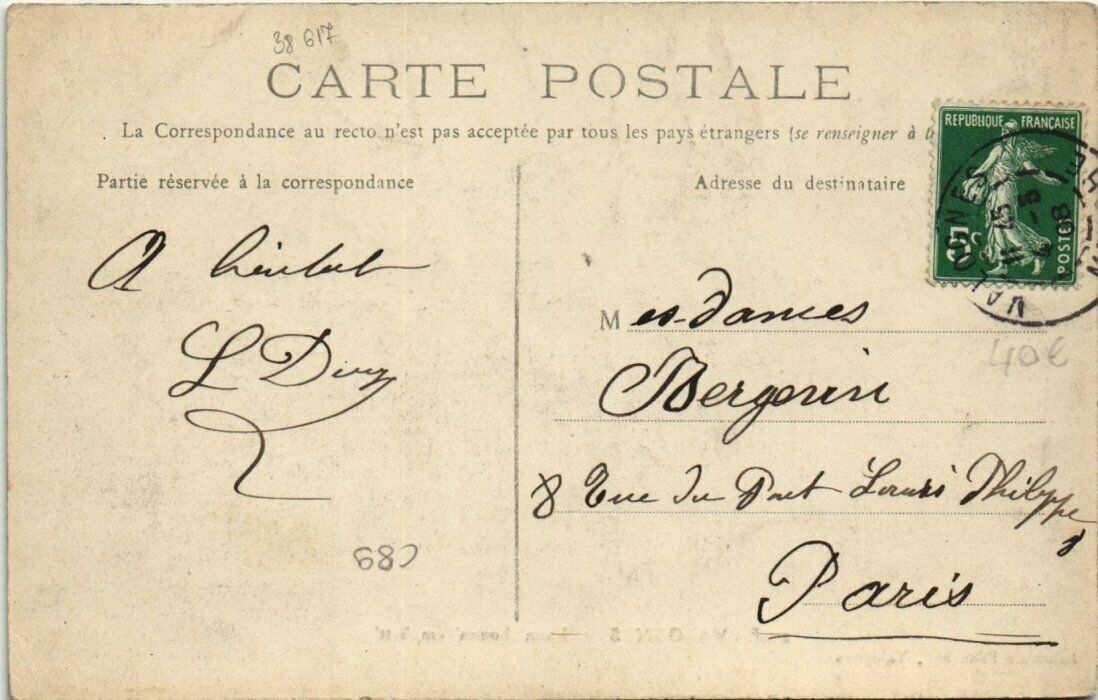 38 617
CARTE POSTALE
La Correspondance au recto n'est pas acceptée par tous les pays étrangers (se renseigner à la
Partie réservée à la correspondance
Adresse du destinataire
REPUBLIQUE FRANÇAISE
5c
POSTES
VALOGNES
A bientot
L Dury
Mes-dames
Bergerin
8 Rue du Pont Louis Philippe
Paris
40€
C89